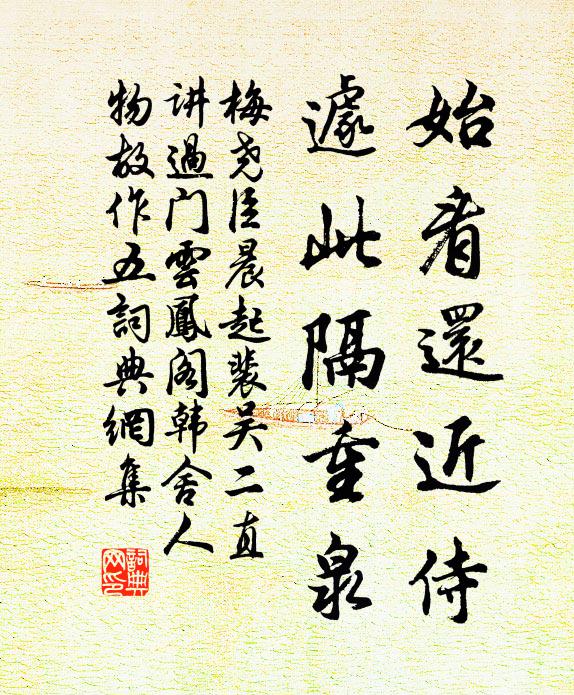 始看還近侍
遽此隔重泉
梅尧臣晨起裴吴二直
讲過门雲鳳阁韩舍人
物故作五詞典網集
詞典網印